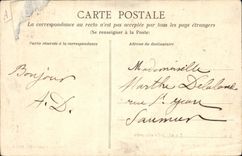 CARTE POSTALE
La correspondance au recto n'est pas acceptée par tous les pays étrangers
(Se renseigner à la Poste)
Partie réservée à la correspondance
Adresse du destinataire
Bonjour
A.D.
Mademoiselle
Marthe Delalane
rue St Jean
Saumur